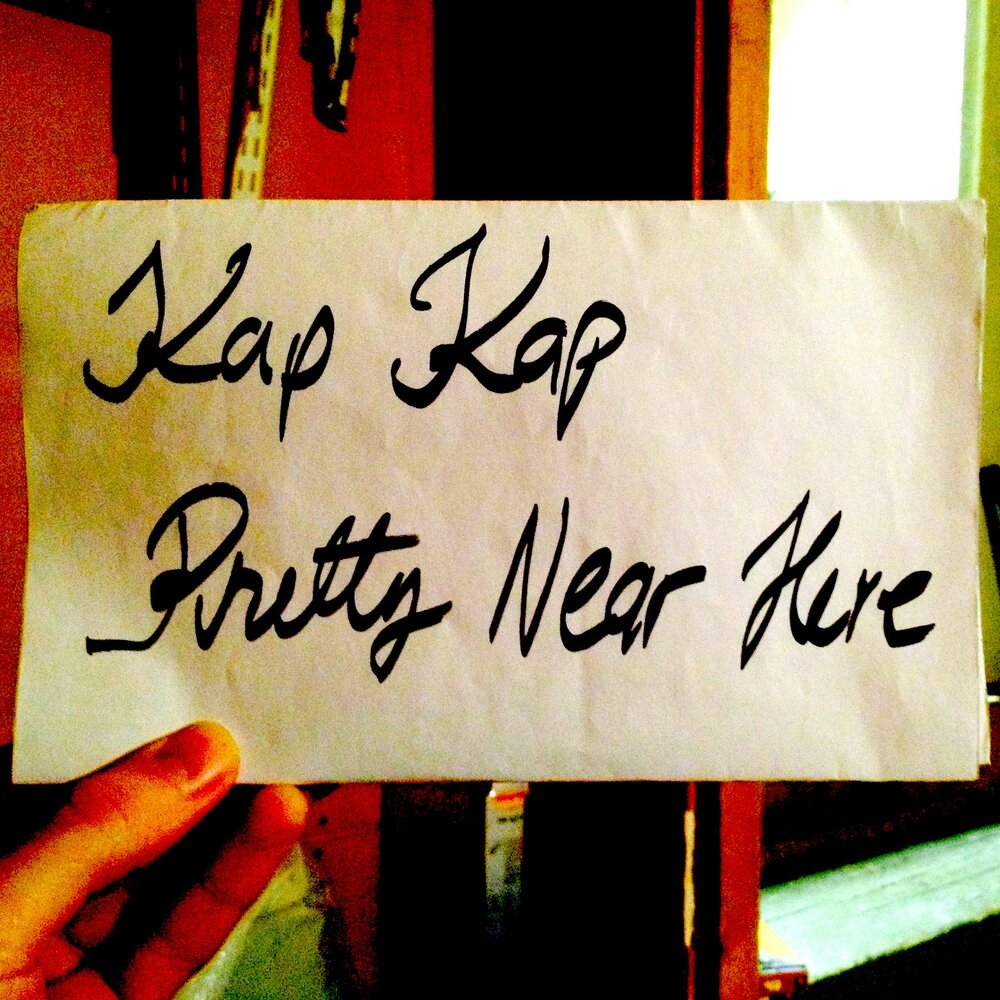 Kap Kap
Pretty Near Here